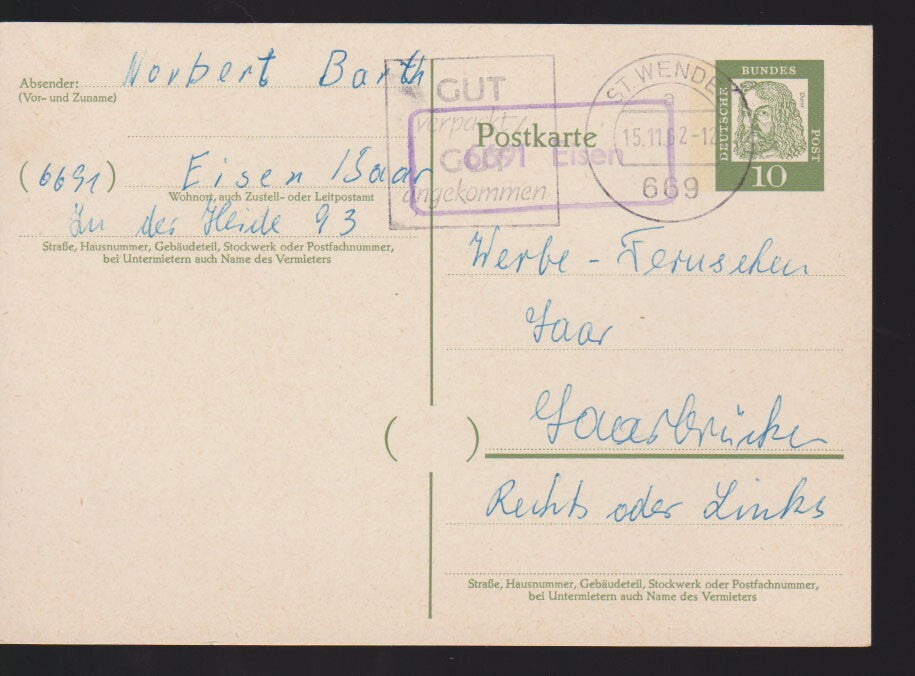 Absender:
(Vor- und Zuname)
Norbert Barth
(6691) Eisen /Saar
Wohnort, auch Zustell- oder Leitpostamt
In der Heide 93
Straße, Hausnummer, Gebäudeteil, Stockwerk oder Postfachnummer,
bei Untermietern auch Name des Vermieters
GUT
verpackt/
GUT
angekommen
6691 Eisen
Postkarte
ST. WENDEL
a
15.11.62-12
669
DEUTSCHE
BUNDES
POST
Dürer
10
Werbe-Fernsehen
Saar
Saarbrücken
( )
Rechts oder Links
Straße, Hausnummer, Gebäudeteil, Stockwerk oder Postfachnummer,
bei Untermietern auch Name des Vermieters